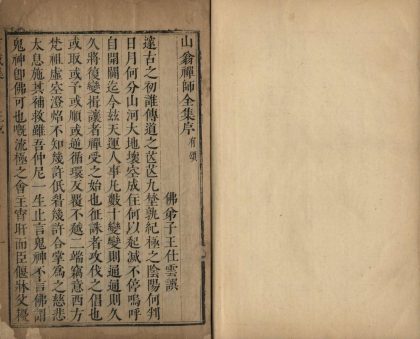 山翁禪師全集序有頌
佛弟子王仕雲譔
邃古之初誰傳道之茫茫九埜孰紀極之陰陽何判
日月何分山河大地壞空成住何以起滅不停嗚呼
自開闢迄今茲天運人事凡數十變變則通通則久
久將復變揖讓者禪受之始也征誅者攻伐之倡也
或取或予或順或逆循環反覆不越二端竊意西方
梵祖虛空澄炤不知幾許低眉幾許合掌為之慈悲
太息施其補救雖吾仲尼一生止言鬼神不言佛謂
鬼神即佛可也嘅流極之會主宵旰而臣偃牀父